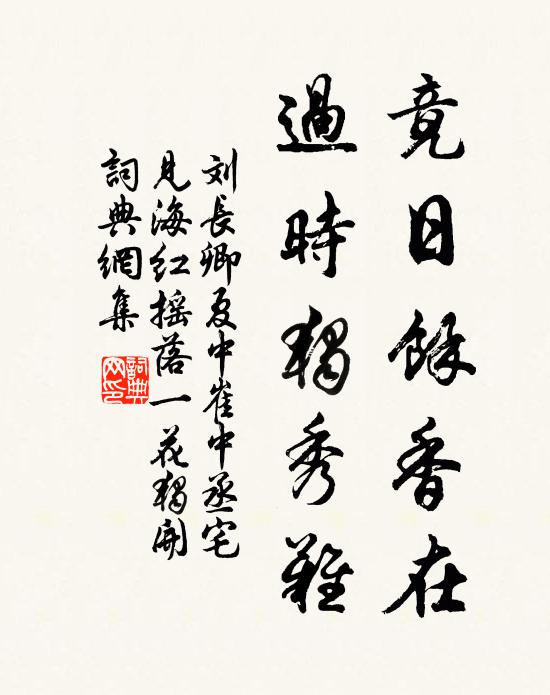 竟日餘香在
過時獨秀難
刘長卿夏中崔中丞宅
見海紅摇落一花獨開
詞典網集
詞典网印